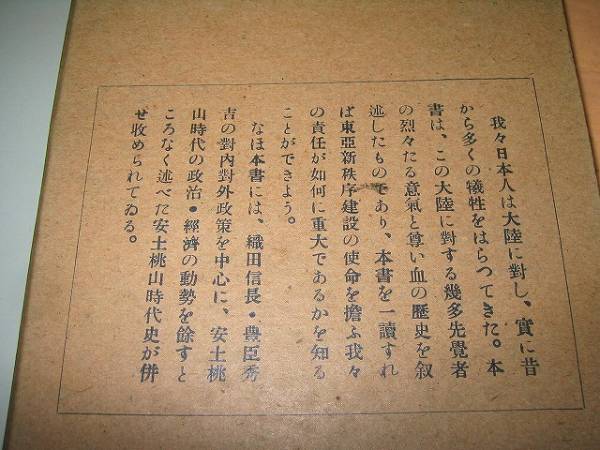 我々日本人は大陸に對し、實に昔
から多くの犧牲をはらつてきた。本
書は、この大陸に對する幾多先覺者
の烈々たる意氣と尊い血の歷史を叙
述したものであり、本書を一讀すれ
ば東亞新秩序建設の使命を擔ふ我々
の責任が如何に重大であるかを知る
ことができよう。
なほ本書には、織田信長・豊臣秀
吉の對內對外政策を中心に、安土桃
山時代の政治・經濟の動勢を餘すと
ころなく述べた安土桃山時代史が併
せ收められてゐる。